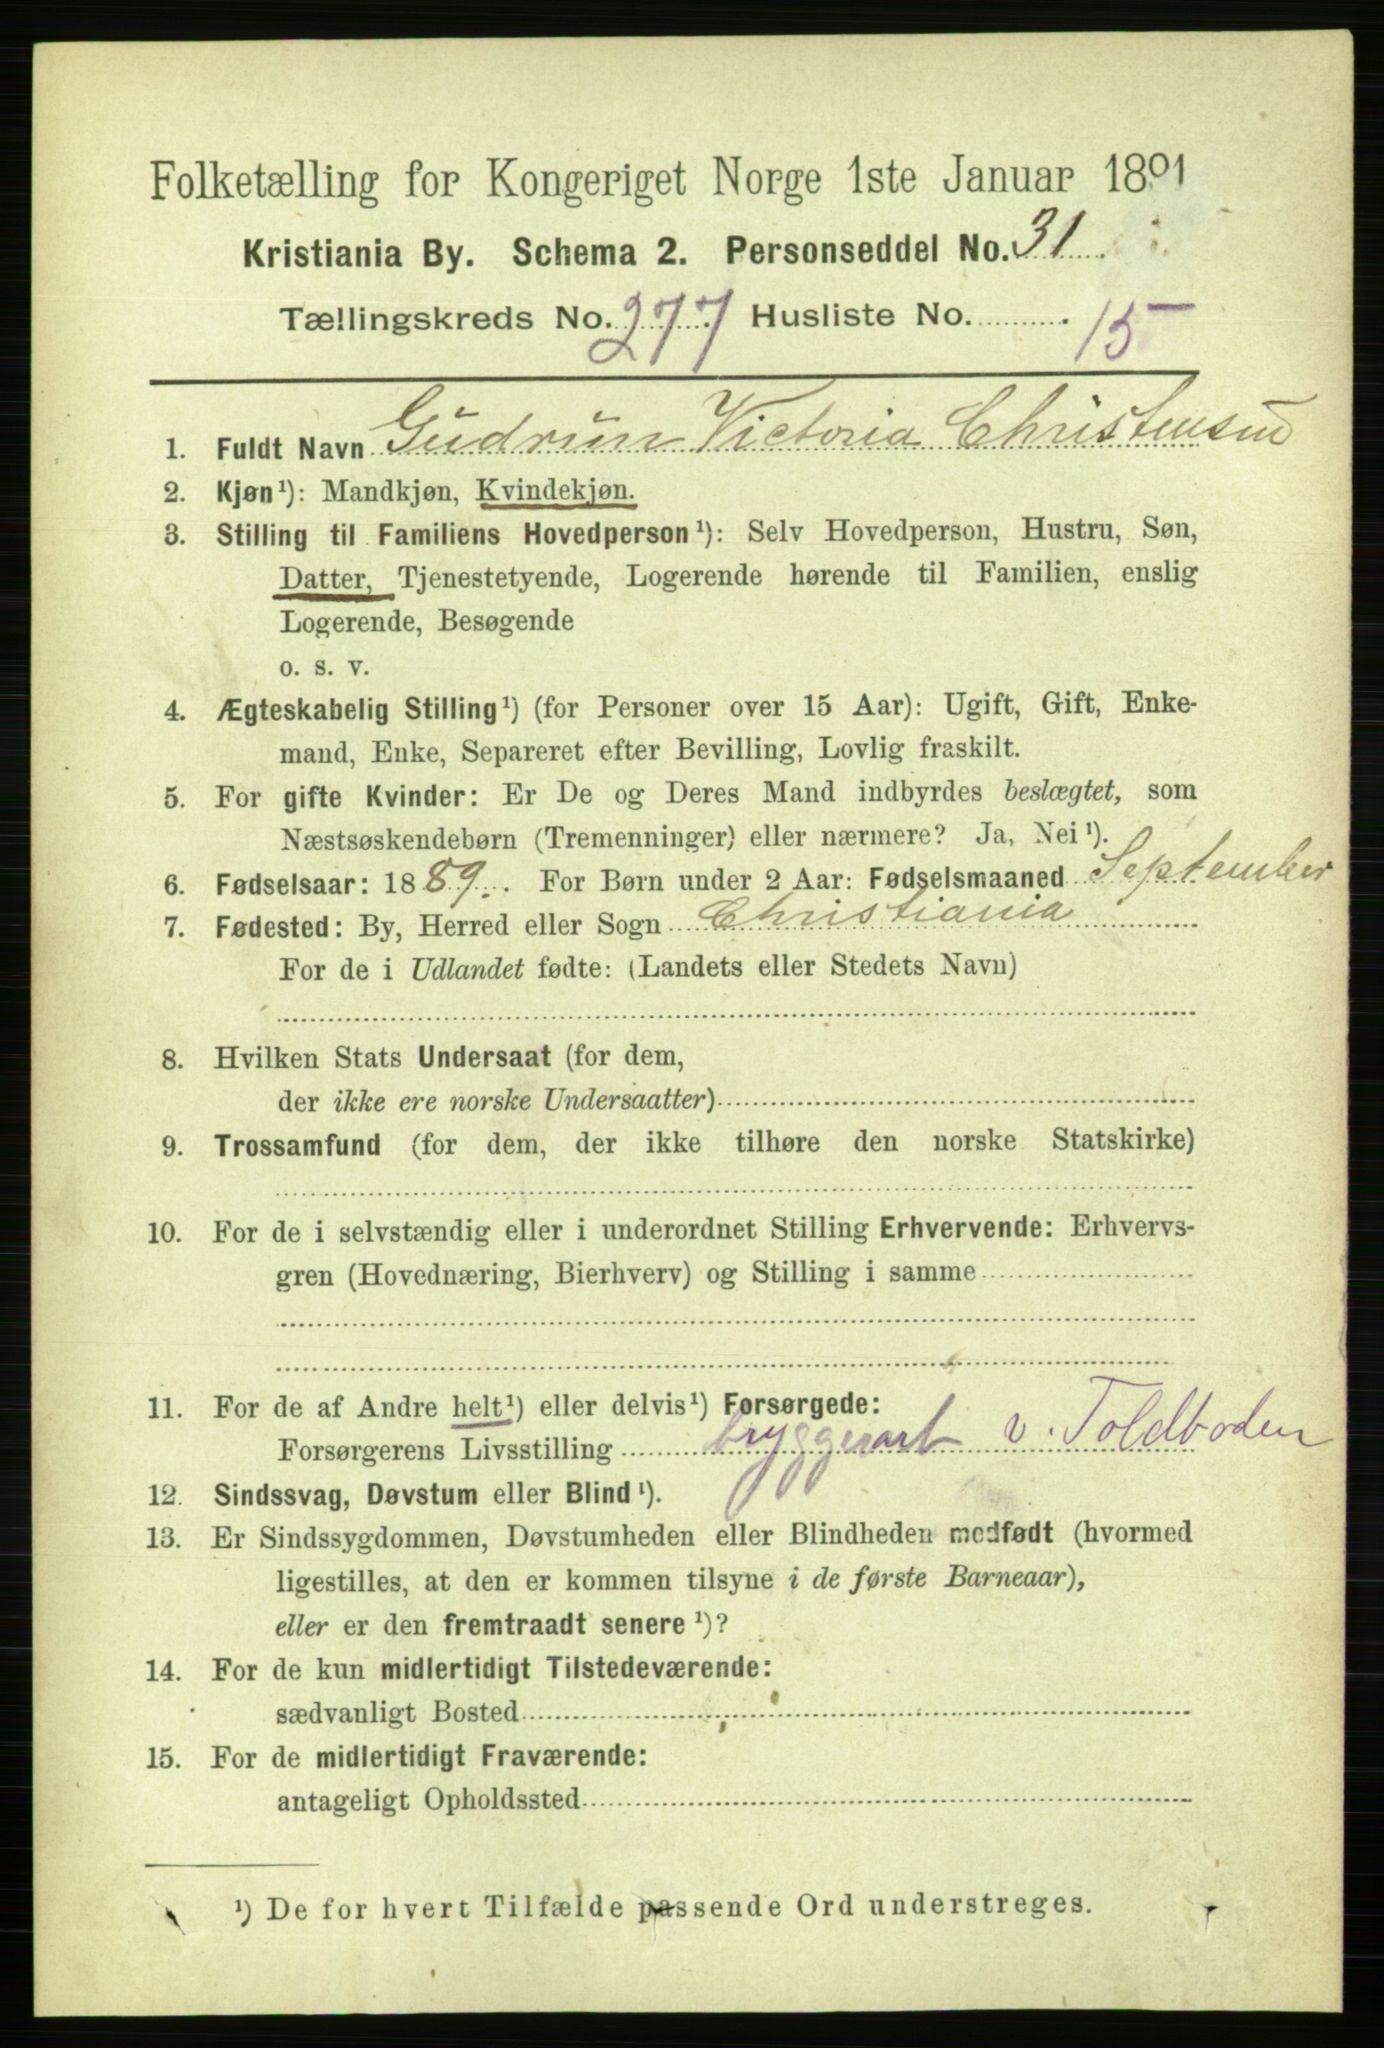 Folketælling for Kongeriget Norge 1ste Januar 1891
Kristiania By. Schema 2. Personseddel No. 31
Tællingskreds No. 277 Husliste No. 15
1. Fuldt Navn Gudrun Victoria Christensen
2. Kjøn¹): Mandkjøn, Kvindekjøn.
3. Stilling til Familiens Hovedperson¹): Selv Hovedperson, Hustru, Søn,
Datter, Tjenestetyende, Logerende hørende til Familien, enslig
Logerende, Besøgende
o. s. v.
4. Ægteskabelig Stilling¹) (for Personer over 15 Aar): Ugift, Gift, Enke-
mand, Enke, Separeret efter Bevilling, Lovlig fraskilt.
5. For gifte Kvinder: Er De og Deres Mand indbyrdes beslægtet, som
Næstsøskendebørn (Tremenninger) eller nærmere? Ja, Nei¹).
6. Fødselsaar: 1889. For Børn under 2 Aar: Fødselsmaaned September
7. Fødested: By, Herred eller Sogn Christiania
For de i Udlandet fødte: (Landets eller Stedets Navn)
8. Hvilken Stats Undersaat (for dem,
der ikke ere norske Undersaatter)
9. Trossamfund (for dem, der ikke tilhøre den norske Statskirke)
10. For de i selvstændig eller i underordnet Stilling Erhvervende: Erhvervs-
gren (Hovednæring, Bierhverv) og Stilling i samme
11. For de af Andre helt¹) eller delvis¹) Forsørgede:
Forsørgerens Livsstilling bryggerarb v. Toldboden
12. Sindssvag, Døvstum eller Blind¹).
13. Er Sindssygdommen, Døvstumheden eller Blindheden medfødt (hvormed
ligestilles, at den er kommen tilsyne i de første Barneaar),
eller er den fremtraadt senere¹)?
14. For de kun midlertidigt Tilstedeværende:
sædvanligt Bosted
15. For de midlertidigt Fraværende:
antageligt Opholdssted
¹) De for hvert Tilfælde passende Ord understreges.